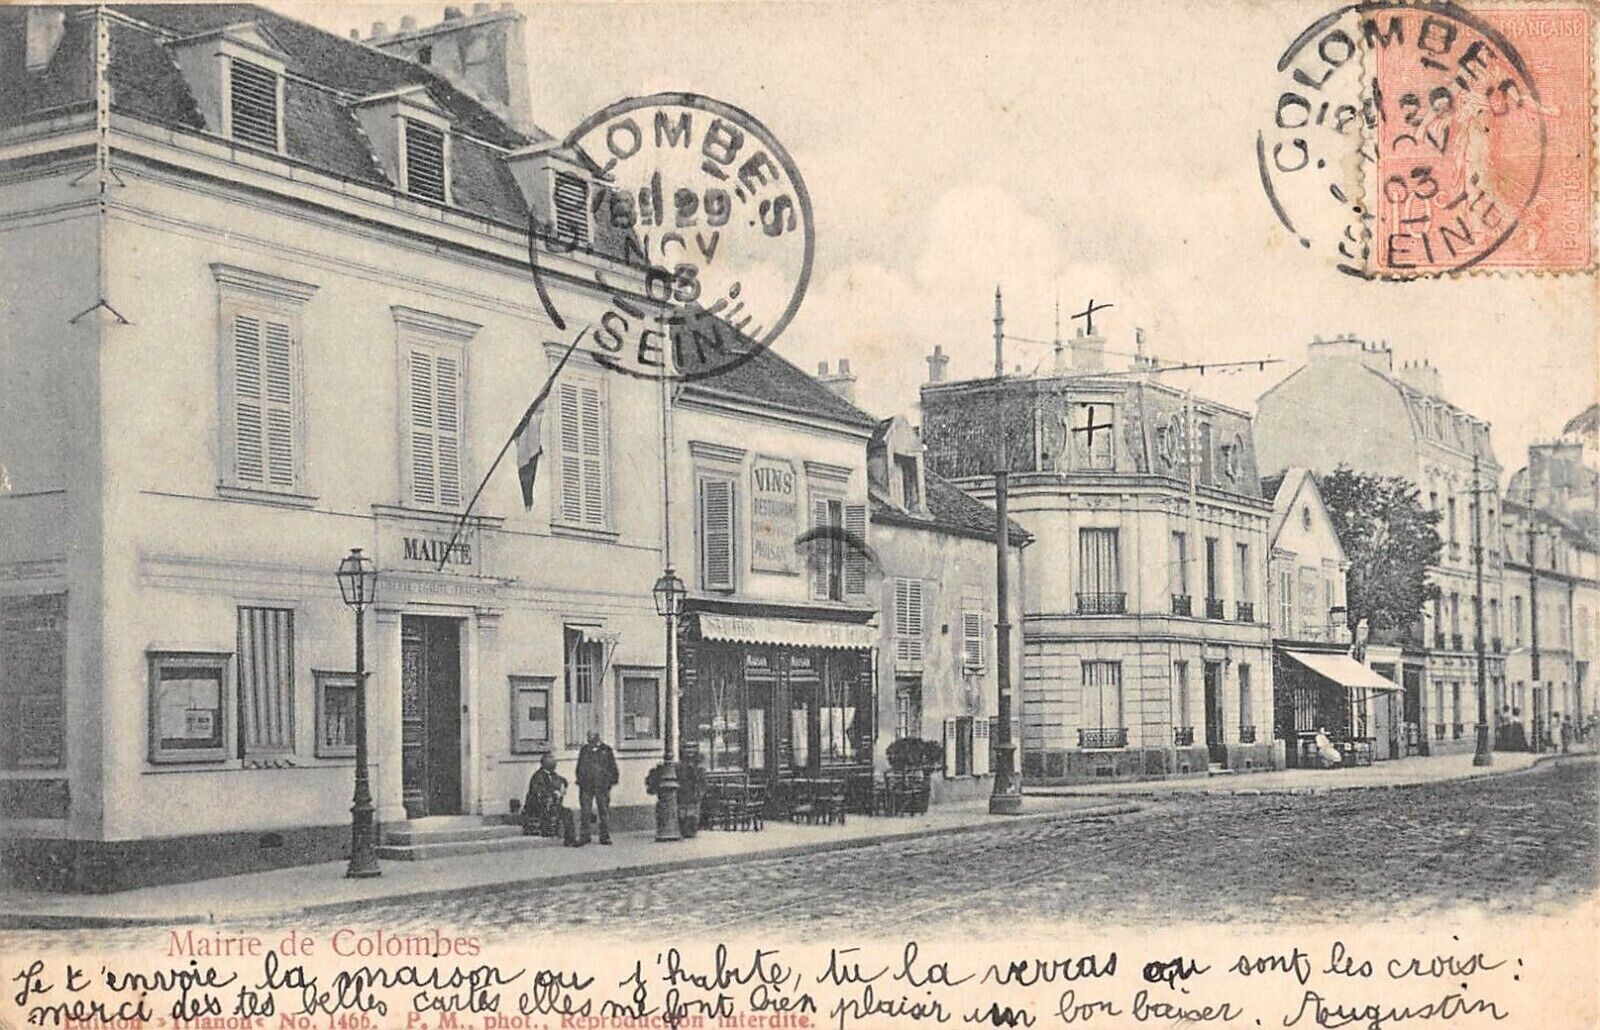 COLOMBES
29
NOV
03
SEINE
COLOMBES
29
03
SEINE
FRANÇAISE
POSTES
10
VINS
RESTAURANT
MAIRIE
Mairie de Colombes
Je t'envoie la maison ou j'habite, tu la verras ou sont les croix :
merci des tes belles cartes elles me font bien plaisir un bon baiser. Augustin
Edition »Trianon« No. 1466. P. M., phot., Reproduction interdite.